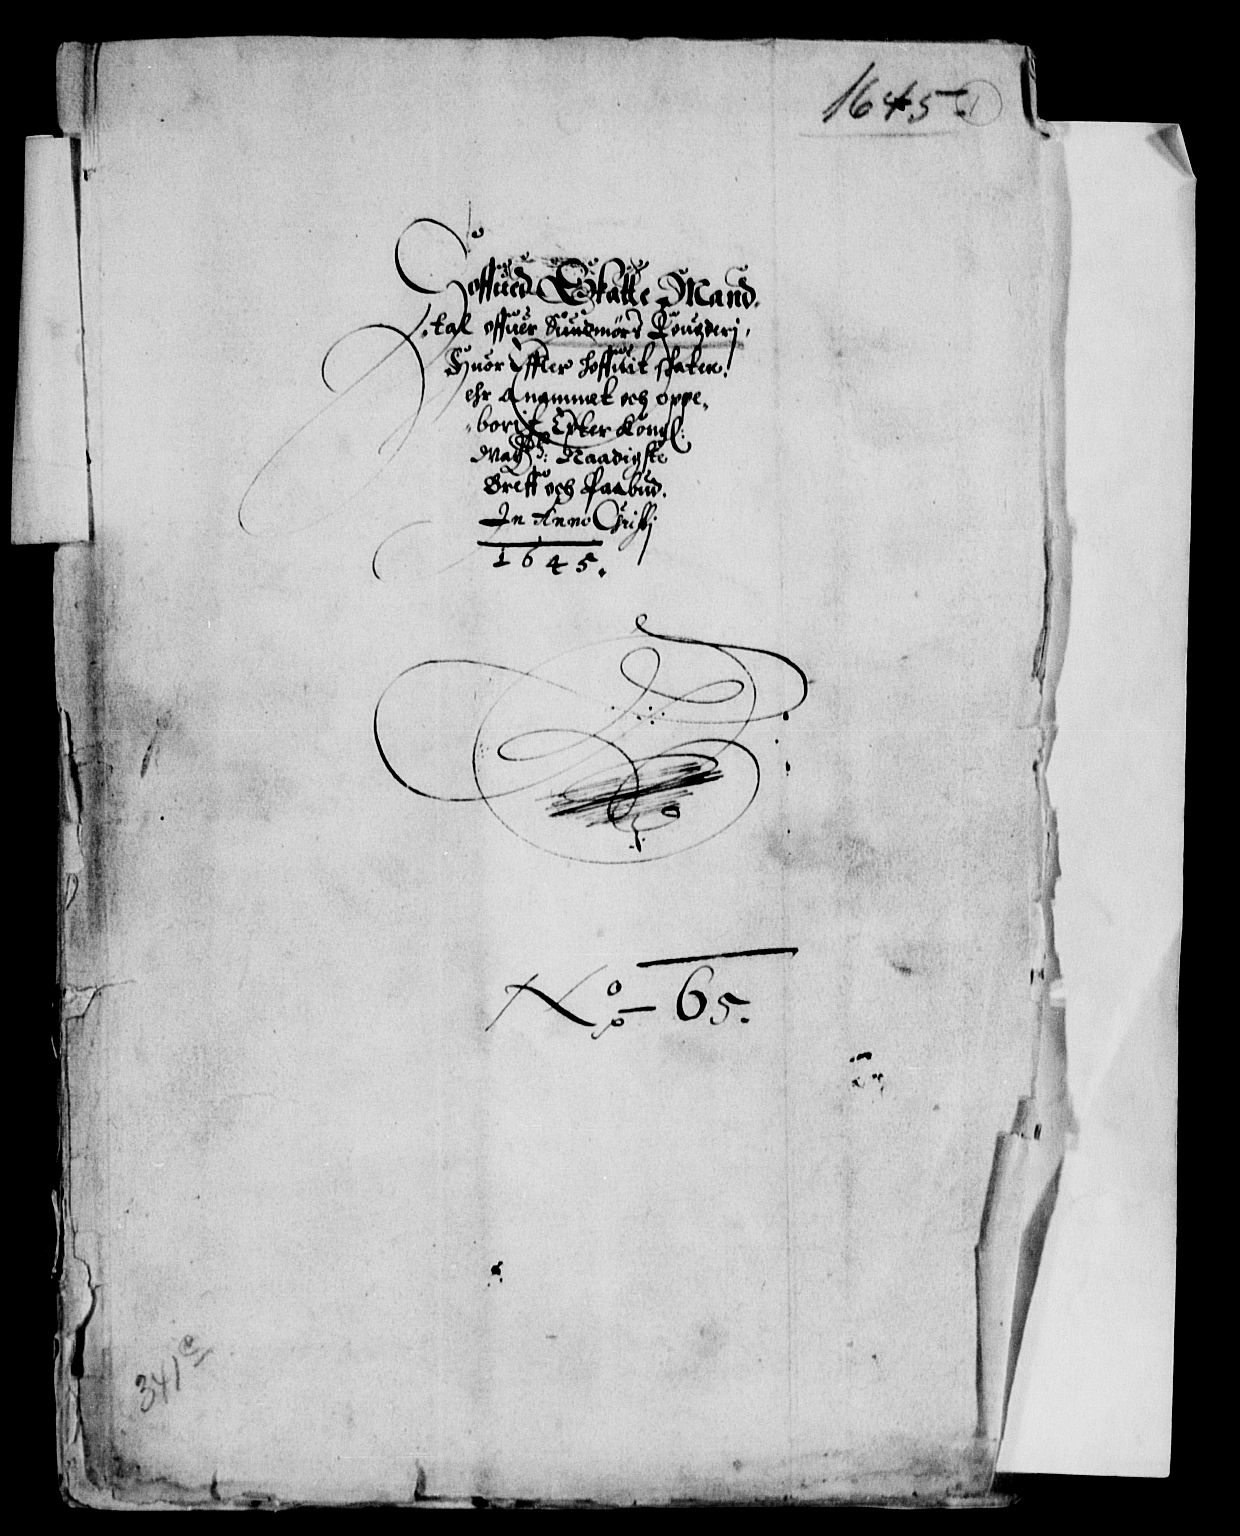 1645. 1
Hoffued Skatte Mand-
tal offuer Sundmørs Fougderj,
Huor Effter hoffuit skaten
ehr Anammet och oppe-
borit Epter Kongl:
May:tz: Naadigste
Breff och Paabud.
In Anno Christj
1645.
No 65.
341